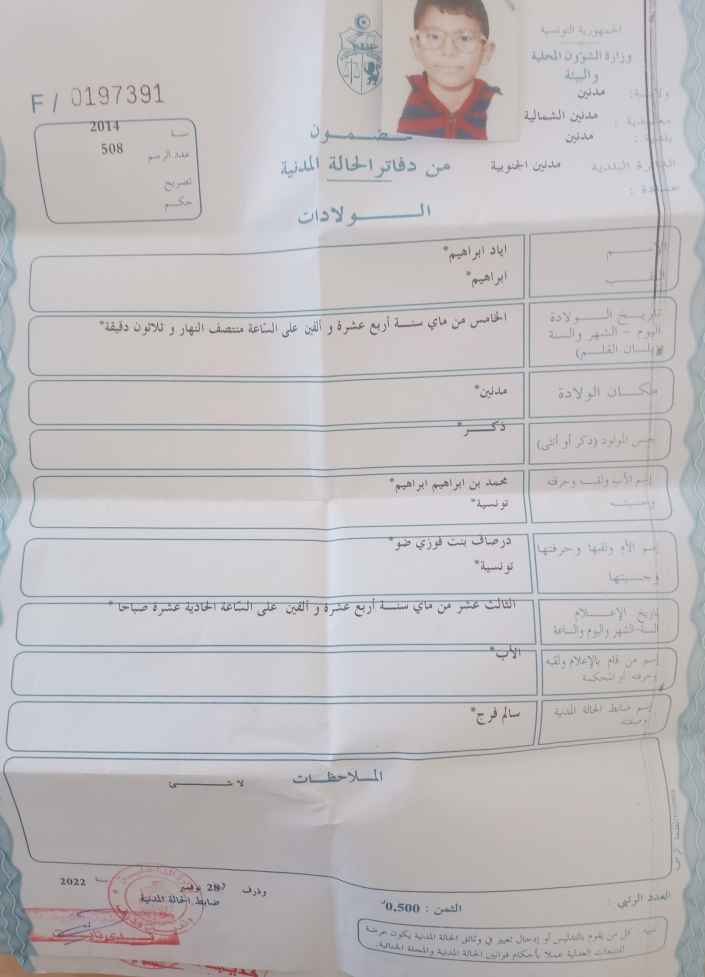 الجمهورية التونسية
وزارة الشؤون المحلية
والبيئة
ولاية: مدنين
معتمدية : مدنين الشمالية
بلدية : مدنين
الدائرة البلدية مدنين الجنوبية
عمادة :
F / 0197391
سنة 2014
عدد الرسم 508
تصريح
حكم
مضمون
من دفاتر الحالة المدنية
الولادات
الإسم اياد ابراهيم*
اللقب ابراهيم*
تاريخ الولادة
اليوم - الشهر والسنة
(بلسان القلم)
الخامس من ماي سنة أربع عشرة و ألفين على الساعة منتصف النهار و ثلاثون دقيقة*
مكان الولادة مدنين*
جنس المولود (ذكر أو أنثى) ذكر*
إسم الأب ولقبه وحرفته محمد بن ابراهيم ابراهيم*
وجنسيته تونسية*
إسم الأم ولقبها وحرفتها درصاف بنت فوزي ضو*
وجنسيتها تونسية*
تاريخ الإعلام
السنة-الشهر واليوم والساعة
الثالث عشر من ماي سنة أربع عشرة و ألفين على الساعة الحادية عشرة صباحا *
إسم من قام بالإعلام ولقبه
وحرفته أو المحكمة
الأب*
إسم ضابط الحالة المدنية
وصفته
سالم فرج*
الملاحظات
لا شئ
وذرف في 28 نوفمبر سنة 2022
ضابط الحالة المدنية
العدد الرتبي :
الثمن : 0,500د
تنبيه : كل من يقوم بالتدليس أو إدخال تغيير في وثائق الحالة المدنية يكون عرضة
للتتبعات العدلية عملا بأحكام قوانين الحالة المدنية والمجلة الجنائية.